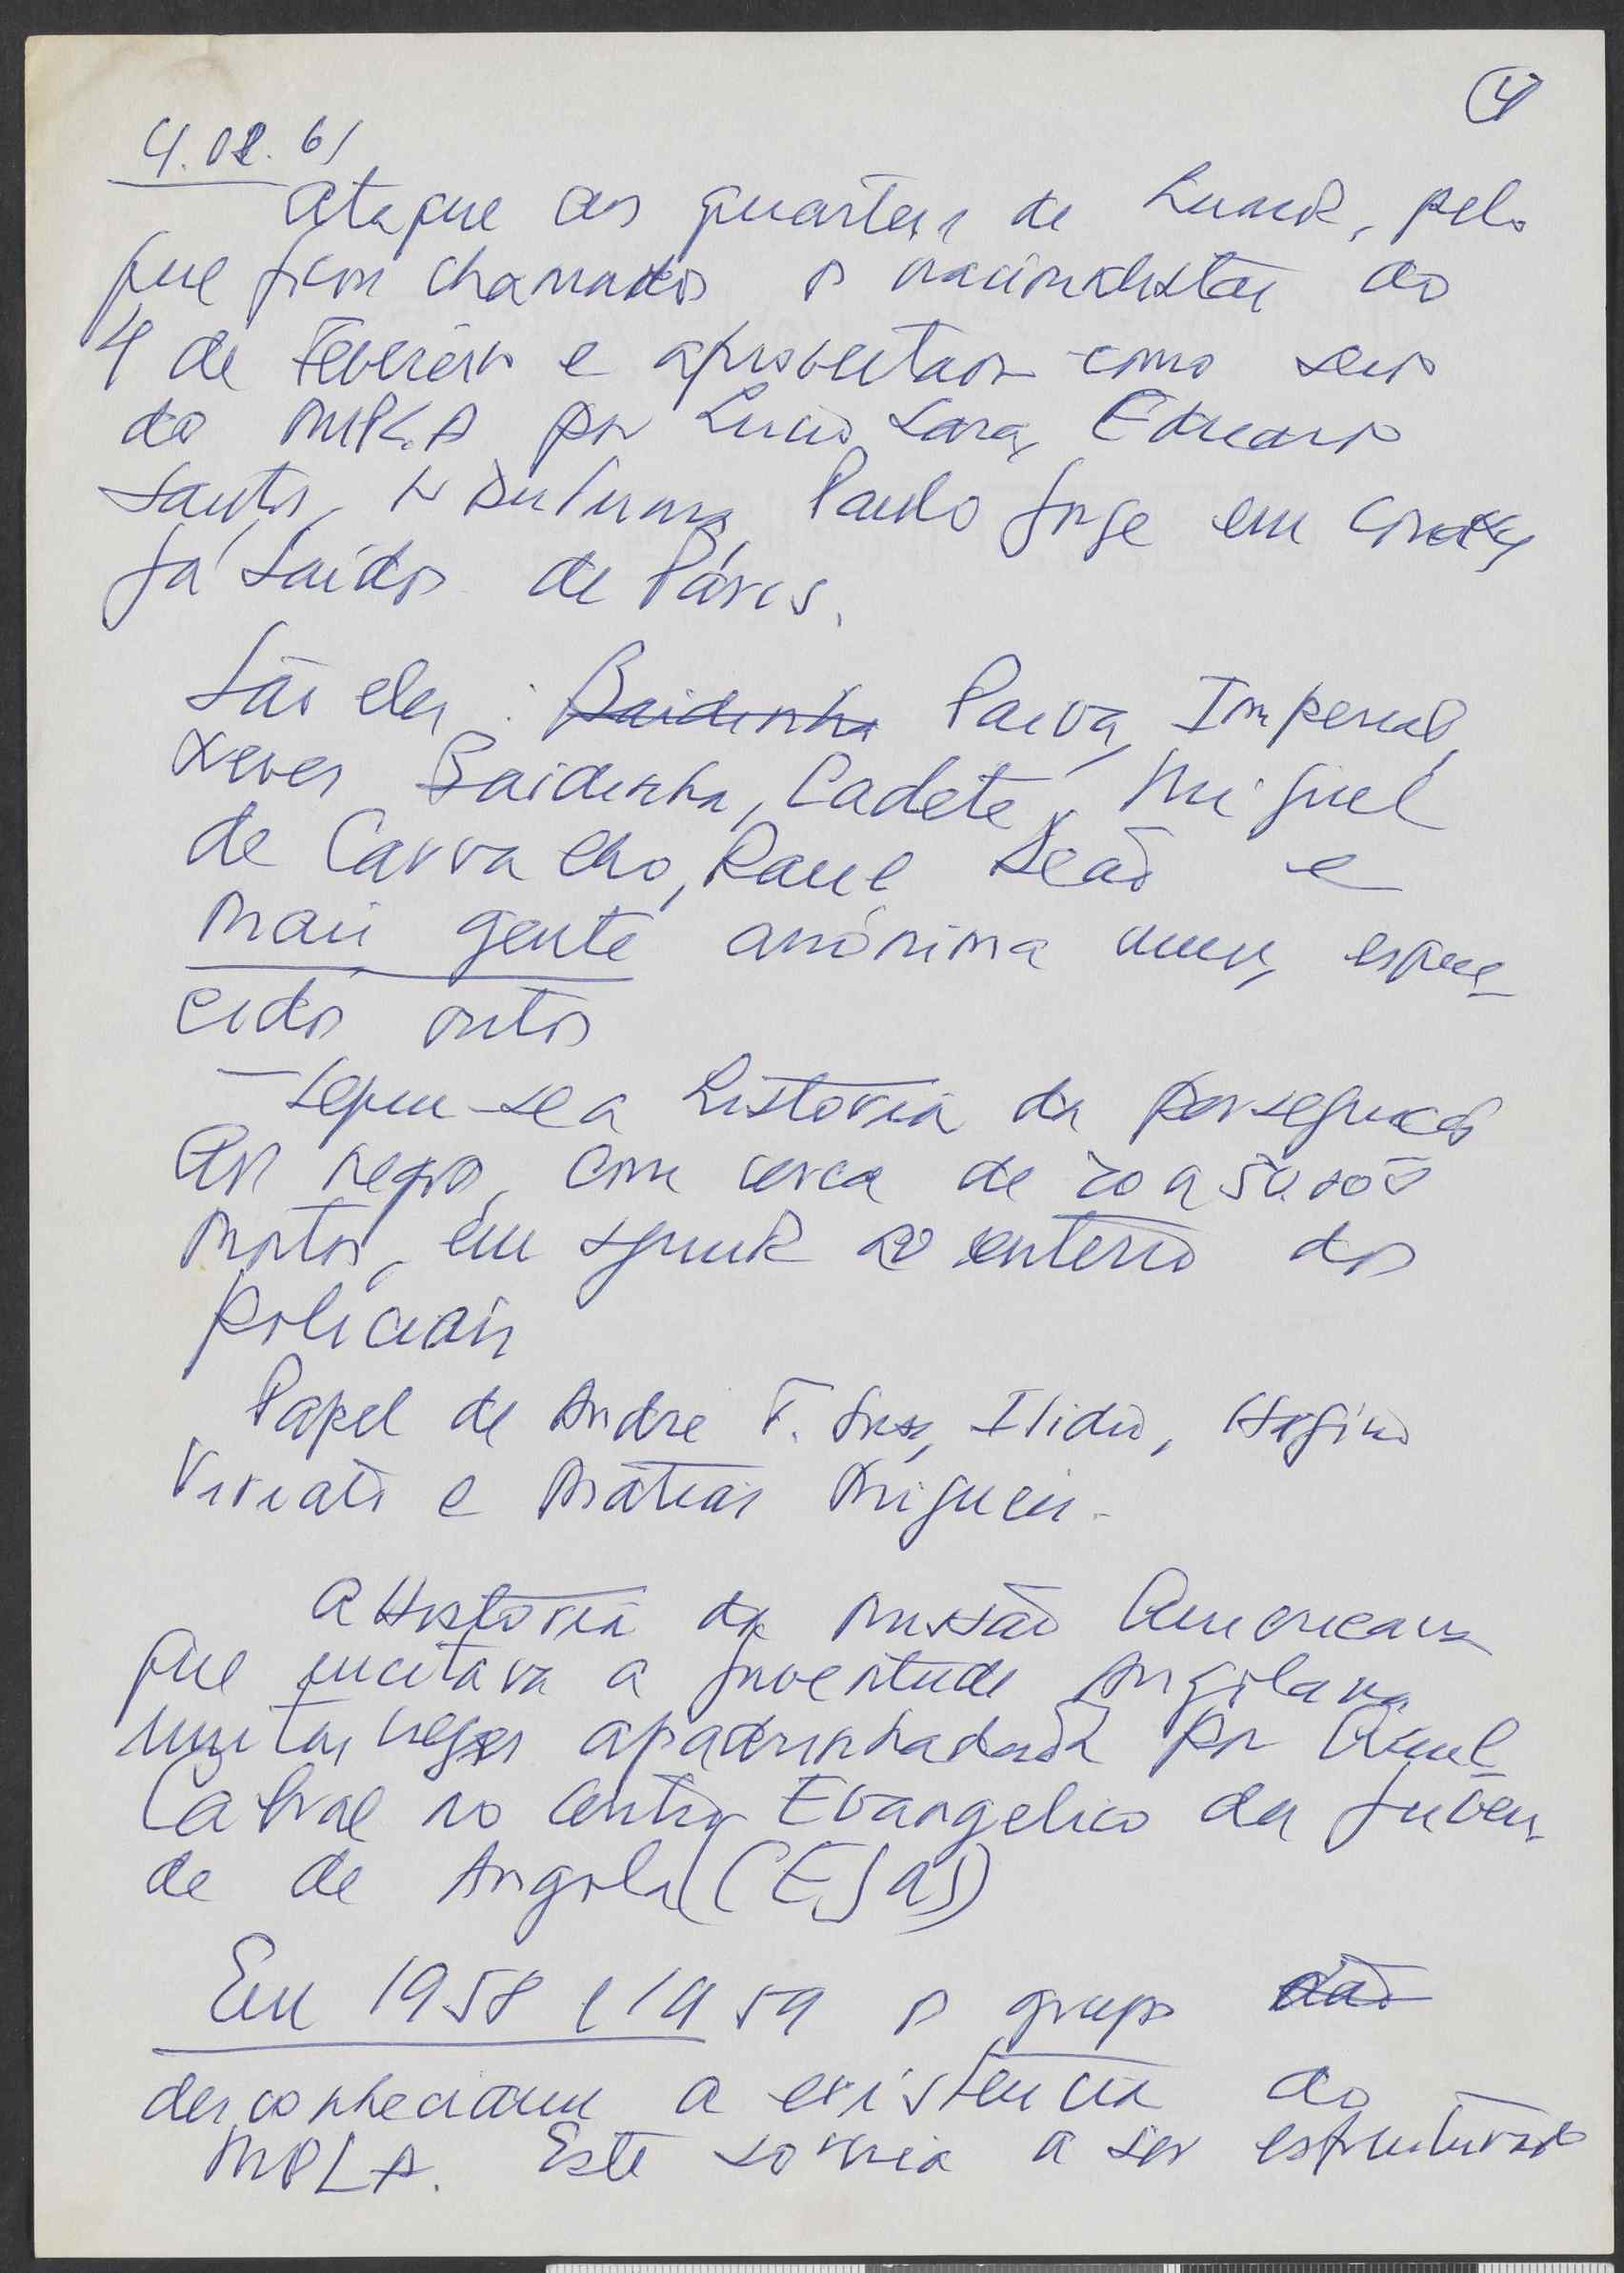 4
4.02.61
Ataque aos quarteis de Luanda, pelo
que ficam chamados os nacionalistas do
4 de Fevereiro e aproveitados como seus
do MPLA por Lucio Lara, Eduardo
Santos, Paulo Jorge em
Já saídos de Páris.
São eles: Baidinha Paiva, Imperial,
Neves Baidinha, Cadete, Miguel
de Carvalho, Raul Leão e
mais gente anónima uns, esque-
cidos outos
- Seguiu-se a historia da perseguição
aos negros, com cerca de 20 a 50.000
mortos, em seguida ao enterro dos
policiais
Papel de Andre F. Ilidio, Higino
Viriato e Matias Migueis.
A Historia da missão Americana
que incitava a juventude Angolana
muitas vezes apadrinhada por Amilcar
Cabral no Centro Evangelico da Juven-
de de Angola (CEJA)
Em 1958 e 1959 o grupo não
desconheciam a existencia do
MPLA. Este so viria a ser estruturado